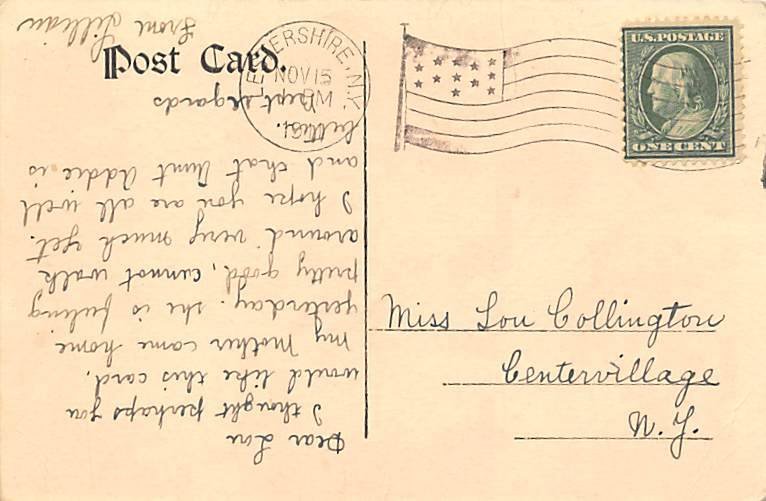 Post Card.
NOV 15
U.S. POSTAGE
ONE CENT
Miss Lou Collington
Centervillage
N.Y.
Dear Lou
I thought perhaps you
would like this card.
My Mother came home
yesterday. She is feeling
pretty good, cannot walk
around very much yet.
I hope you are all well
and that Aunt Addie is
better.
regards
from Lillian